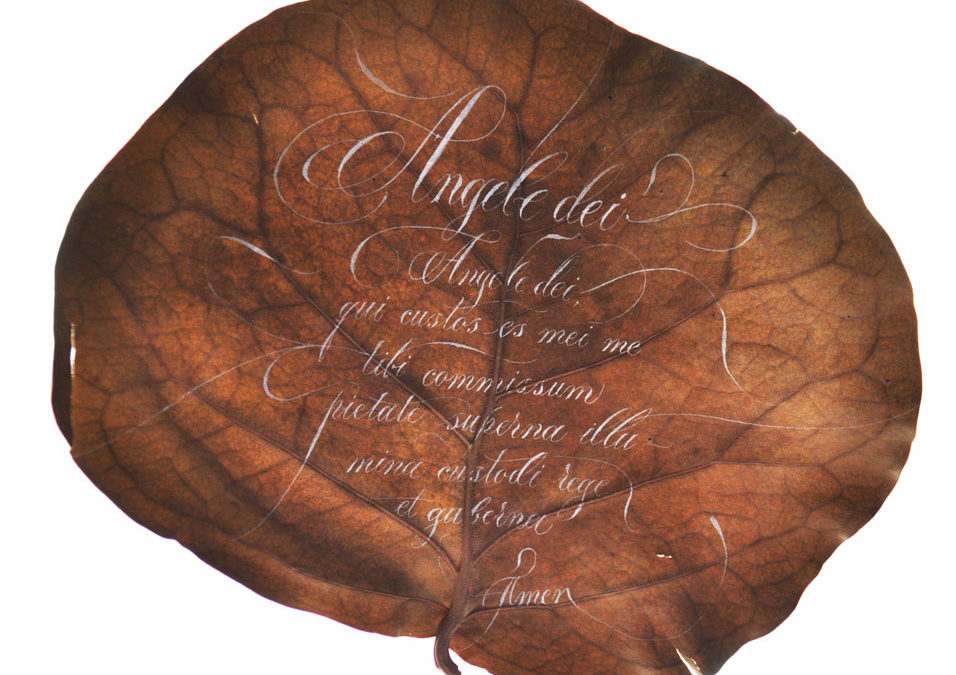 Angele dei
Angele dei,
qui custos es mei me
tibi commissum
pietate superna illu-
mina custodi rege
et guberna
Amen